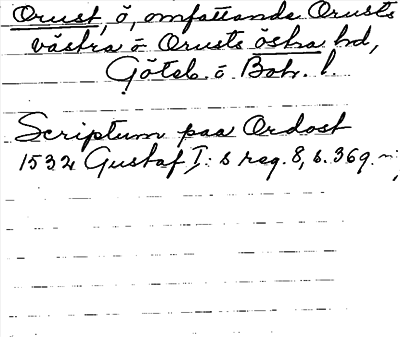 Orust, ö, omfattande Orusts
västra o Orusts östra hd,
Göteb. o Boh. l.
Scriptum paa Ordost
1532 Gustaf I:s reg. 8, s. 369.